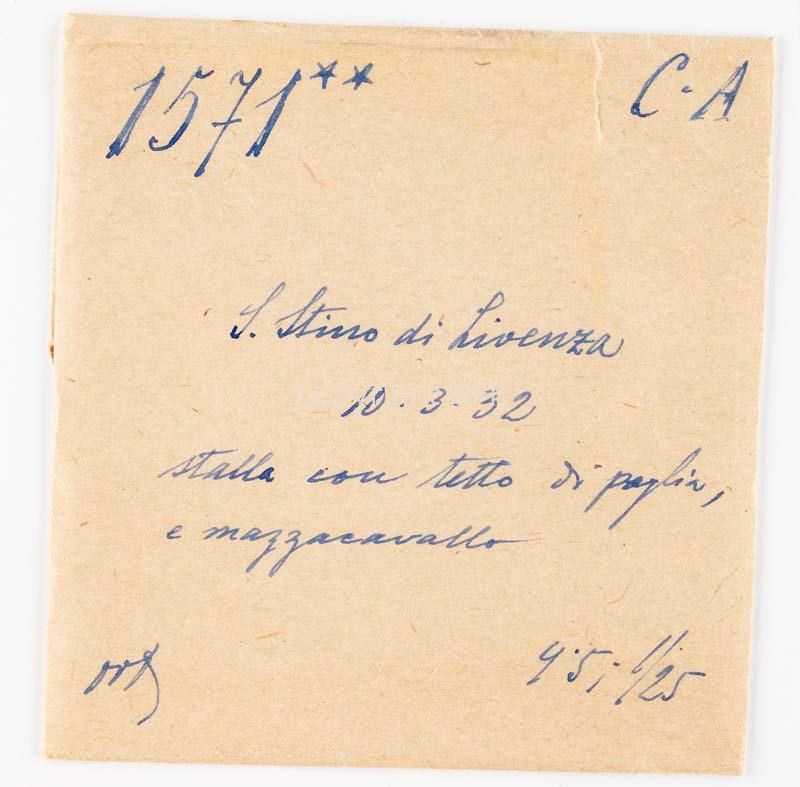 1571** C-A
S. Stino di Livenza
10-3-32
stalla con tetto di paglia,
e mazzacavallo
4.5; 1/25